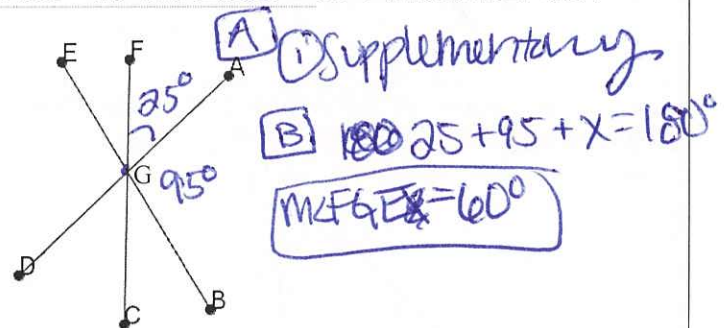 E F A
25°
G 95°
D
C B
A ① Supplementary
B 25+95+x=180°
m<FGE=60°